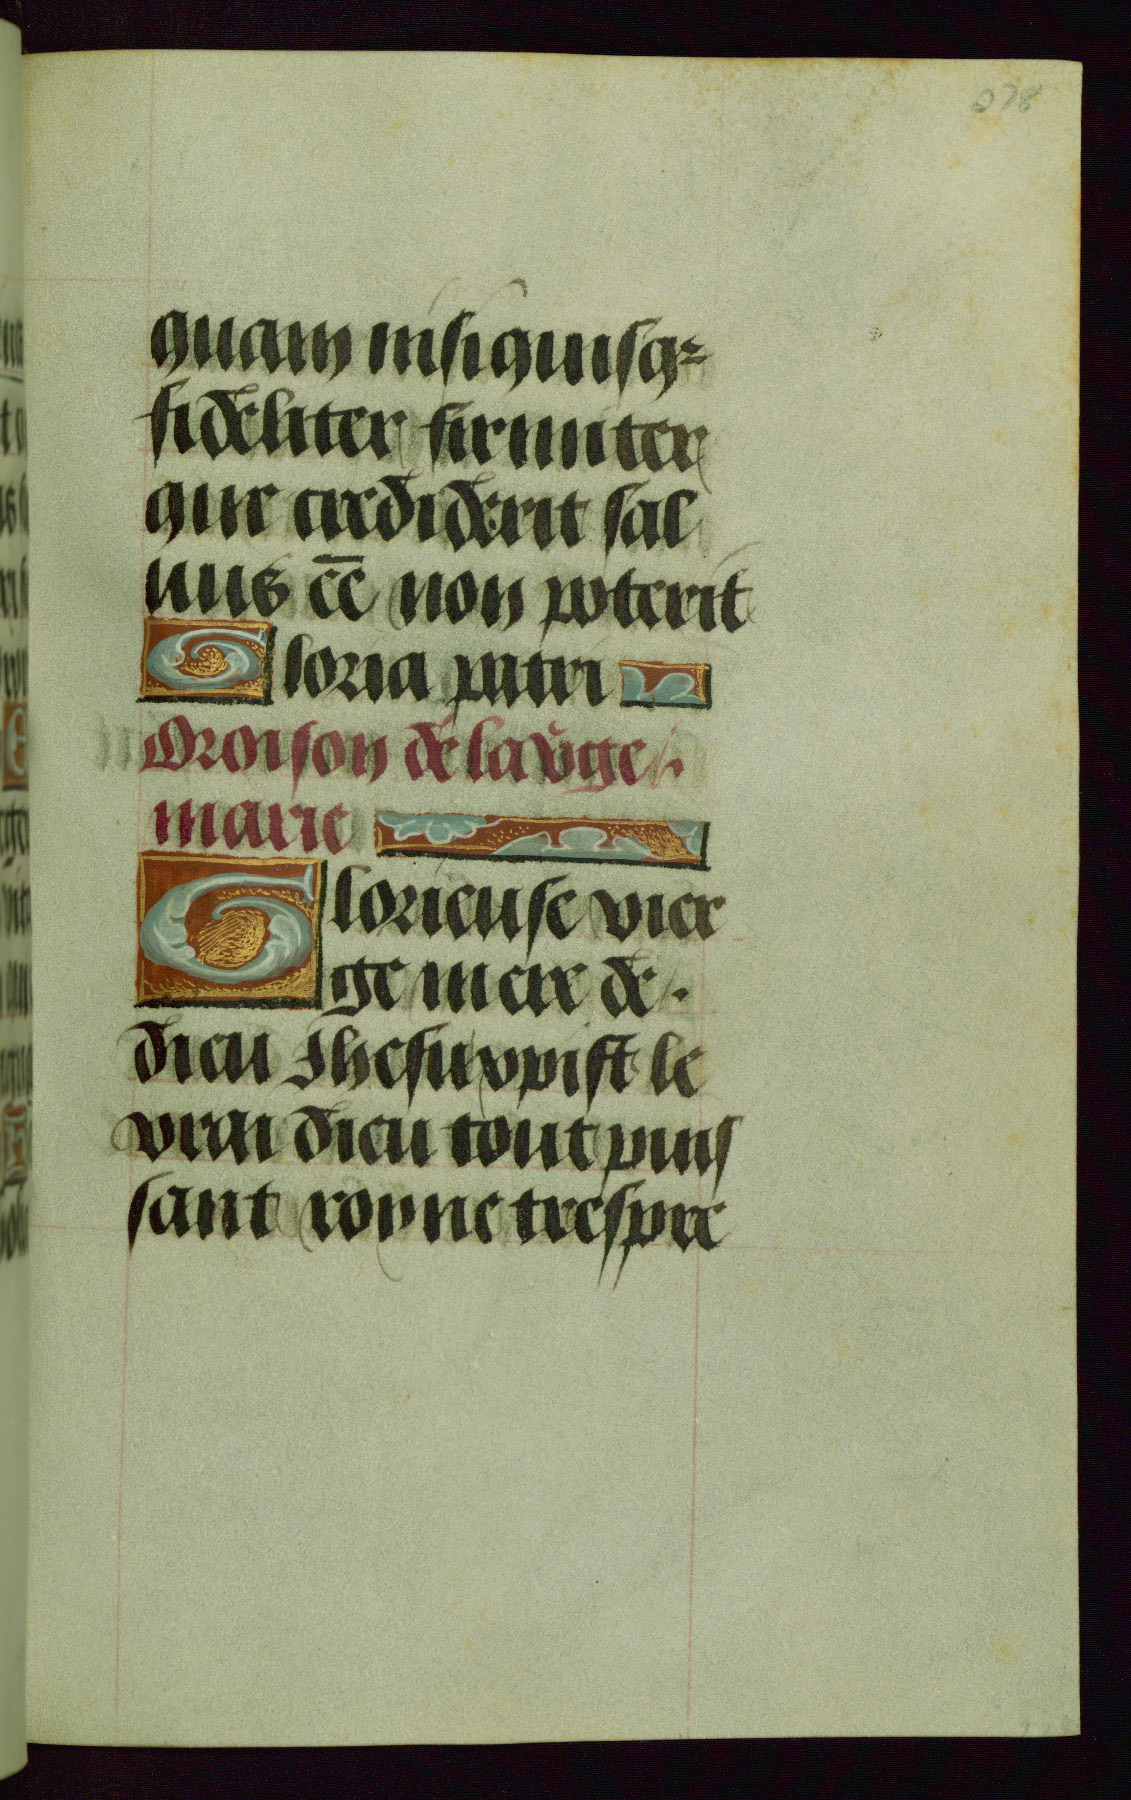 278
quam nisi quisq3
fideliter firmiter
que crediderit sal
uus ēē non poterit
Gloria patri
Oroison de la v̾ge
marie
Glorieuse vier
ge mere de
dieu Jhesu xpist le
vrai dieu tout puis
sant royne trespre